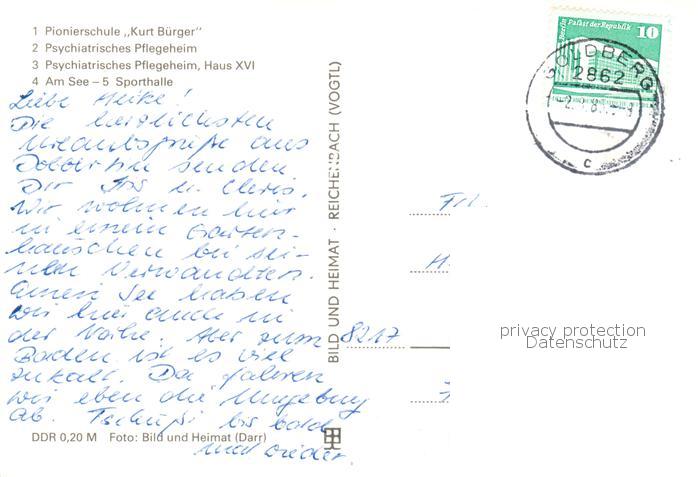 1 Pionierschule „Kurt Bürger"
2 Psychiatrisches Pflegeheim
3 Psychiatrisches Pflegeheim, Haus XVI
4 Am See – 5 Sporthalle
Liebe Heike!
Die herzlichsten
Urlaubsgrüße aus
Dobbertin senden
Dir u. Chris.
Wir wohnen hier
in einem Garten-
häuschen bei sei-
nen Verwandten.
Einen See haben
wir hier auch in
der Nähe. Aber zum
Baden ist es viel
zukalt. Da fahren
wir eben die Umgebung
ab. Tschüßi bis bald
mal wieder
DDR 0,20 M Foto: Bild und Heimat (Darr)
BILD UND HEIMAT · REICHENBACH (VOGTL)
Berlin Palast der Republik
10
GOLDBERG
2862
c
Frl.
H.
8217
privacy protection
Datenschutz